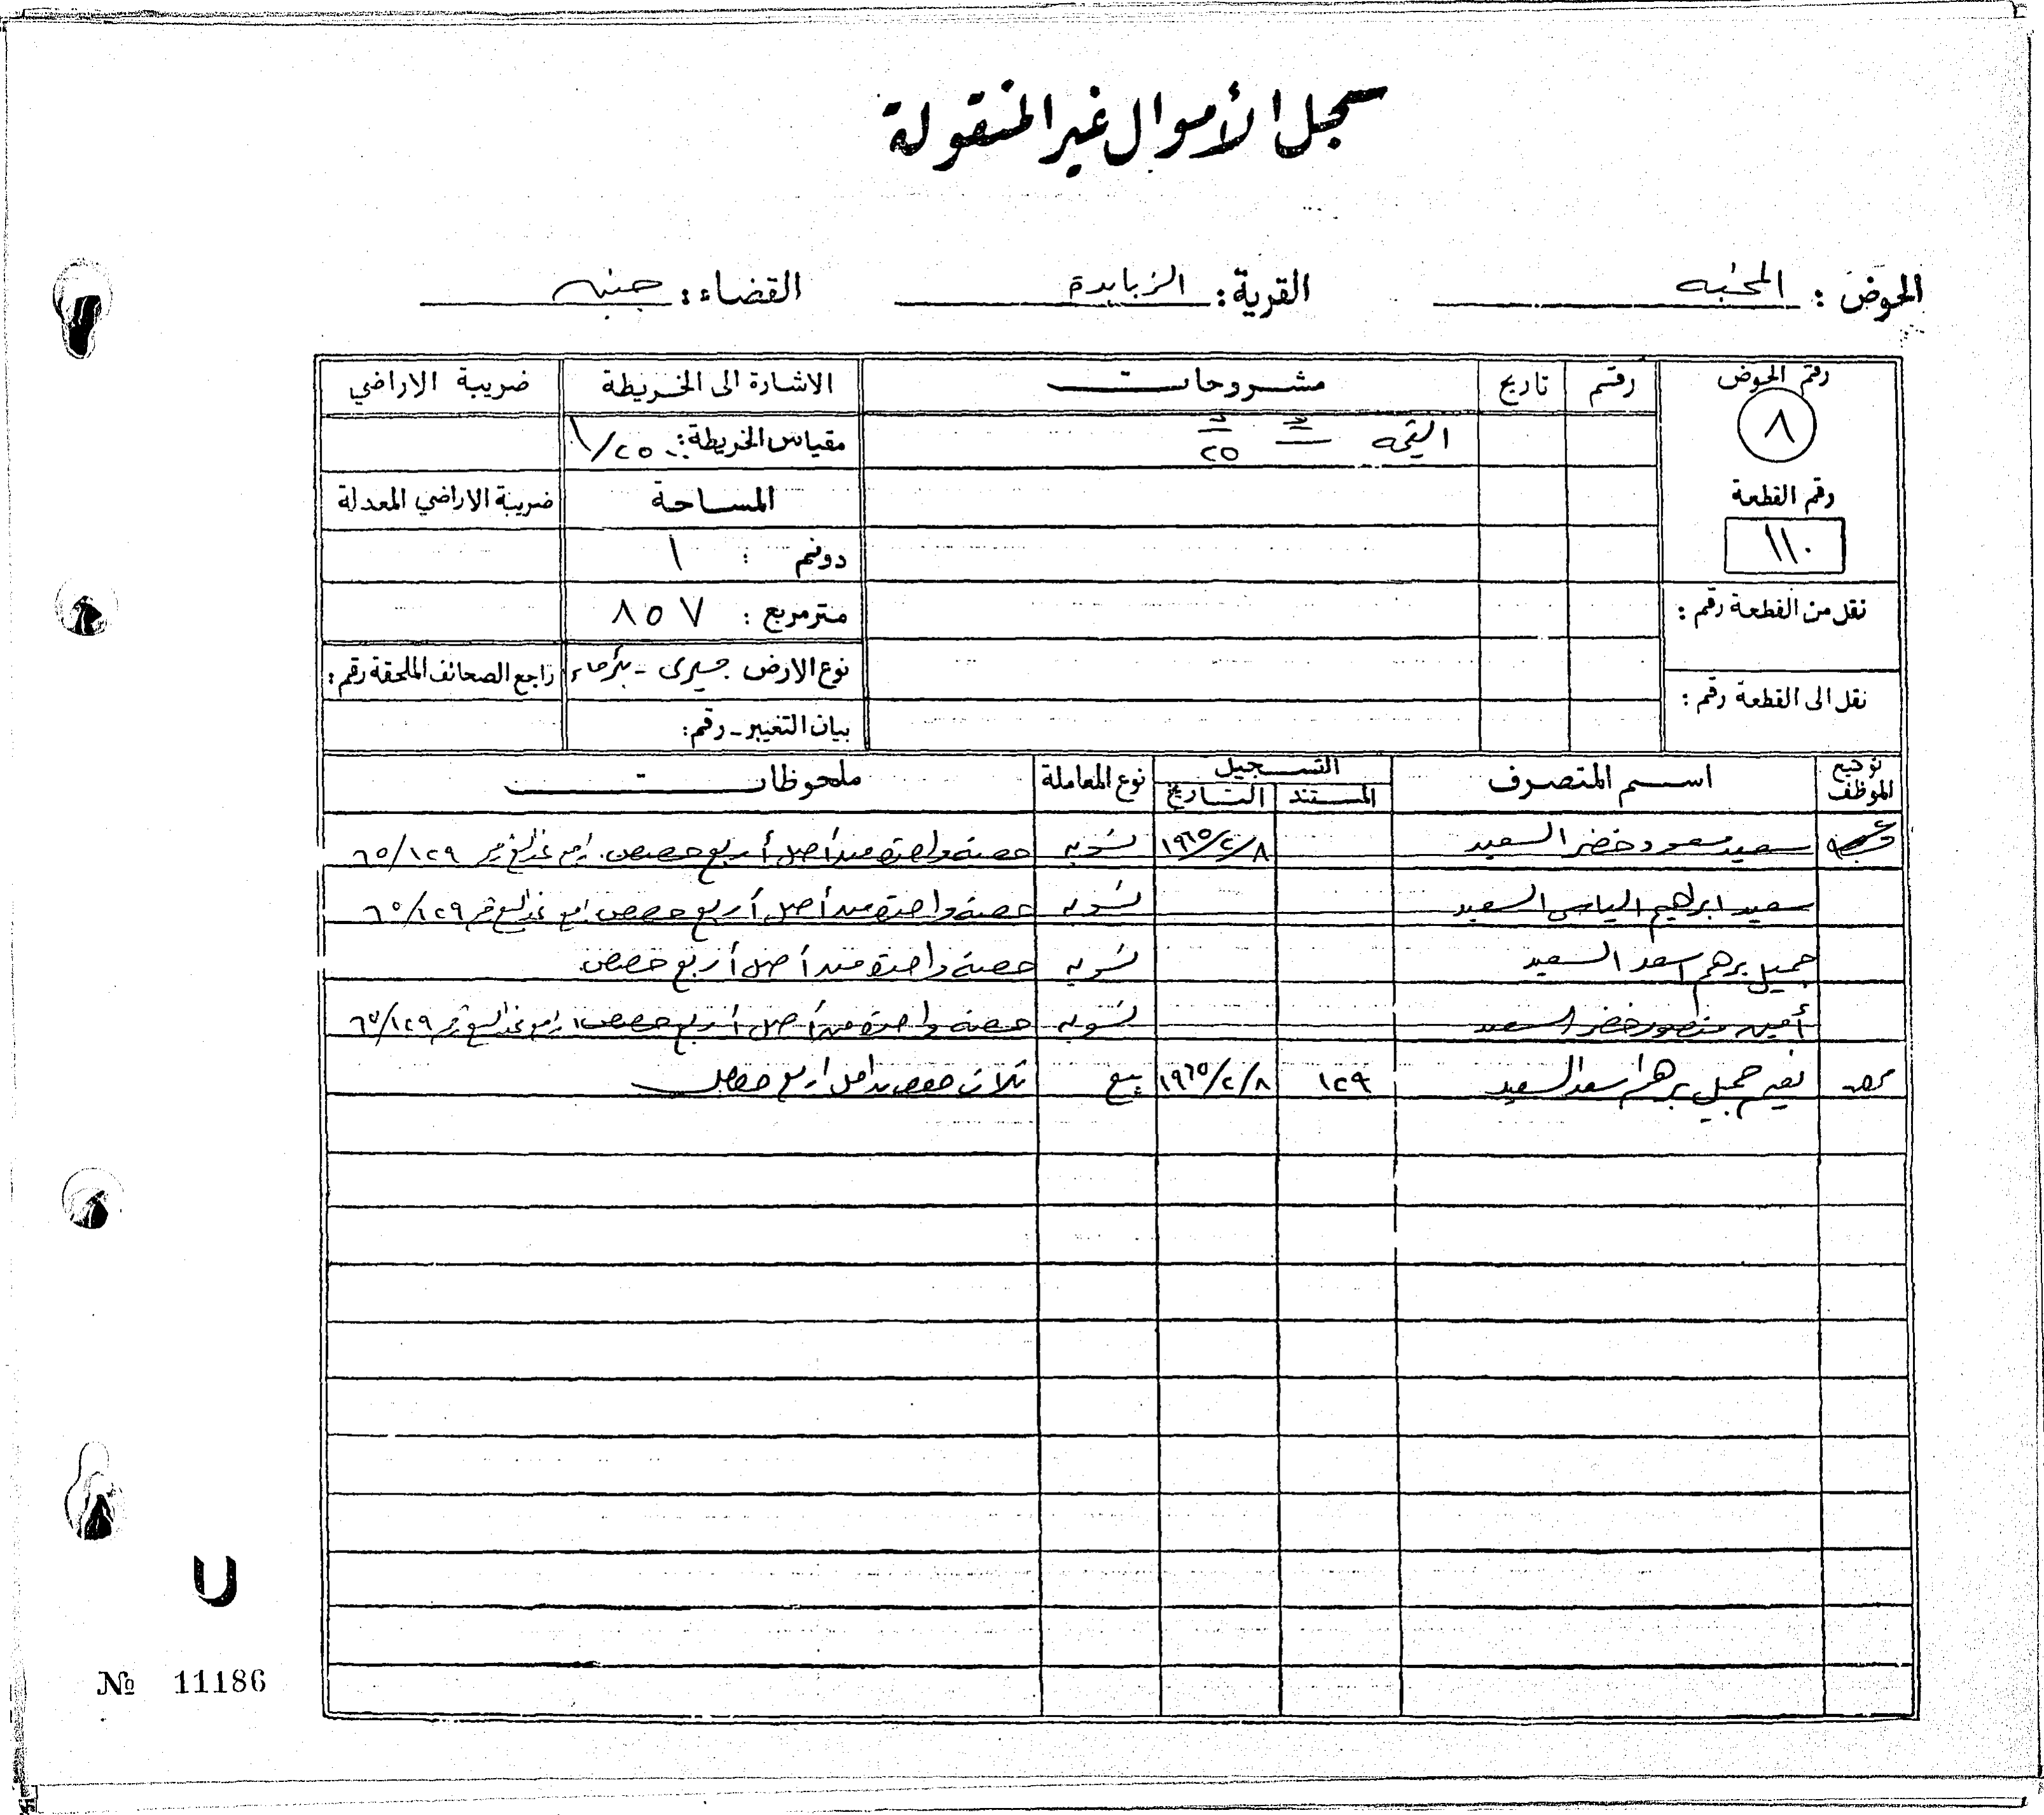 سجل الأموال غير المنقولة
الحوض : القرية : الزبابدة القضاء : جنين
رقم الحوض رقم تاريخ مشروحات الاشارة الى الخريطة ضريبة الاراضي
٨ القيمة د ٢٥ مقياس الخريطة : ١/٢٥٠٠
رقم القطعة المساحة ضريبة الاراضي المعدلة
١١٠ دونم : ١
نقل من القطعة رقم : متر مربع : ٨٥٧
نوع الارض راجع الصحائف الملحقة رقم :
نقل الى القطعة رقم : بيان التغيير - رقم :
توقيع الموظف اسم المتصرف التسجيل المستند التاريخ نوع المعاملة ملحوظات
سعيد مسعود خضر السعيد ١٩٦٥/٢/٨ تسوية حصة واحدة من أصل أربع حصص ٦٥/١٢٩
سعيد ابراهيم الياس السعيد تسوية حصة واحدة من أصل أربع حصص ٦٥/١٢٩
جميل برهم اسعد السعيد تسوية حصة واحدة من أصل أربع حصص
أمين منصور خضر السعيد تسوية حصة واحدة من أصل أربع حصص ٦٥/١٢٩
جميل برهم اسعد السعيد ١٢٩ ١٩٦٥/٢/٨ بيع ثلاث حصص من اصل اربع حصص
№ 11186